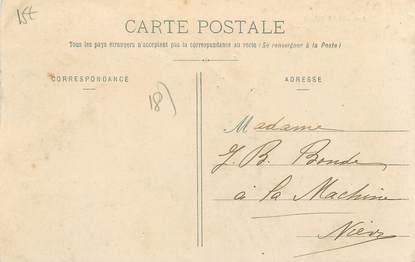 15t
CARTE POSTALE
Tous les pays étrangers n'acceptent pas la correspondance au recto (Se renseigner à la Poste)
CORRESPONDANCE
ADRESSE
18)
Madame
J. B. Bonde
à La Machine
Nièvre